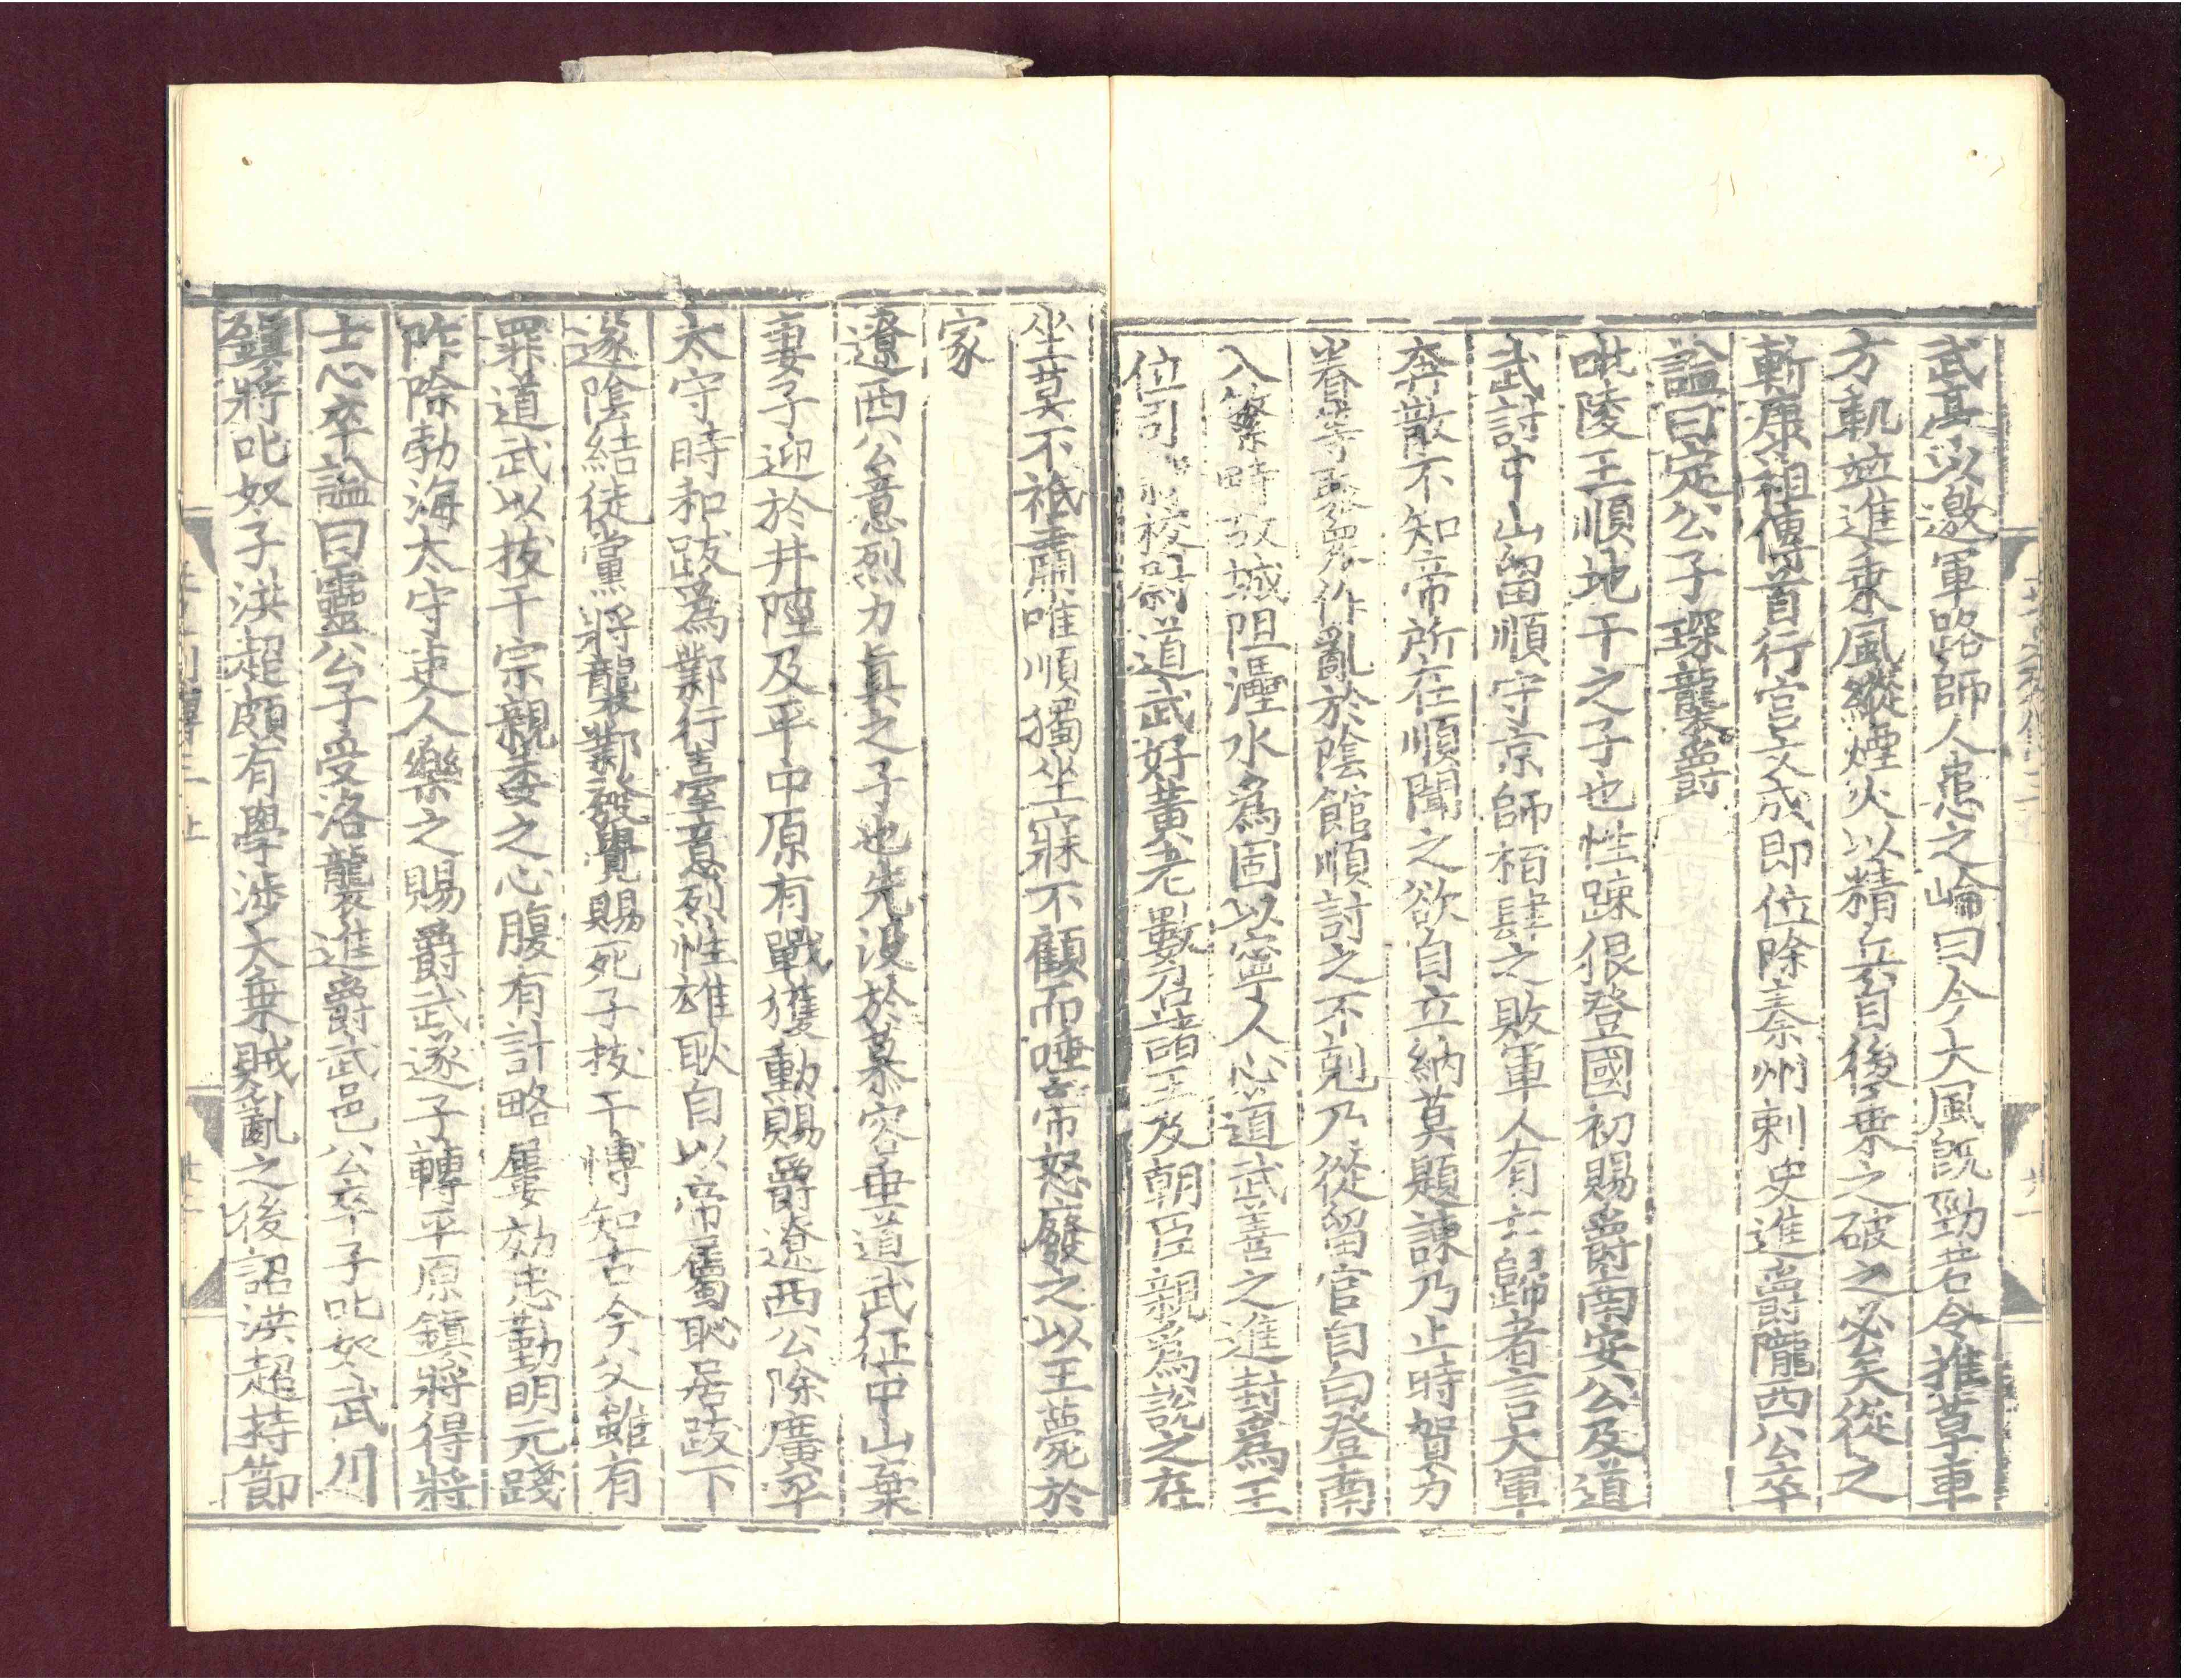 武亭以邀軍路師人患之崘曰今大風旣勁若令推草車
方軌並進乗風縱煙火以精兵自後乗之破之必矣從之
斬康祖傳首行宫文成即位除秦州刺史進爵隴西公卒
謚曰定公子琛襲爵
毗陵王順地干之子也性踈佷登國初賜爵南安公及道
武討中山留順守京師栢肆之敗軍人有亡歸者言大軍
奔散不知帝所在順聞之欲自立納莫題諌乃止時賀力
眷等聚衆作亂於陰館順討之不剋乃從留官自白登南
入繁畤故城阻㶟水爲固以寧人心道武善之進封爲王
位司隷校尉道武好黄老數召諸王及朝臣親爲説之在
坐莫不祗肅唯順獨坐寐不顧而唾帝怒廢之以王薨於
家
遼西公意烈力真之子也先没於慕容垂道武征中山棄
妻子迎於井陘及平中原有戰獲勳賜爵遼西公除廣平
太守時和跋爲鄴行臺意烈性雄耿自以帝屬恥居跋下
遂陰結徒黨將襲鄴發覺賜死子拔干愽知古今父雖有
罪道武以拔干宗親委之心腹有計略屢効忠勤明元踐
阼除勃海太守吏人樂之賜爵武遂子轉平原鎮將得將
士心卒謚曰靈公子受洛襲進爵武邑公卒子叱奴武川
鎮將叱奴子洪超頗有學渉大乗賊亂之後詔洪超持節